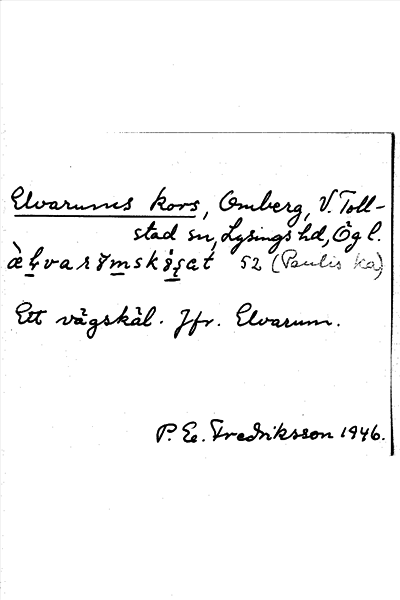 Elvarums kors, Omberg, V. Toll-
stad sn, Lysings hd, Ög l.
52 (Paulis ka)
Ett vägskäl. Jfr. Elvarum.
P. E. Fredriksson 1946.